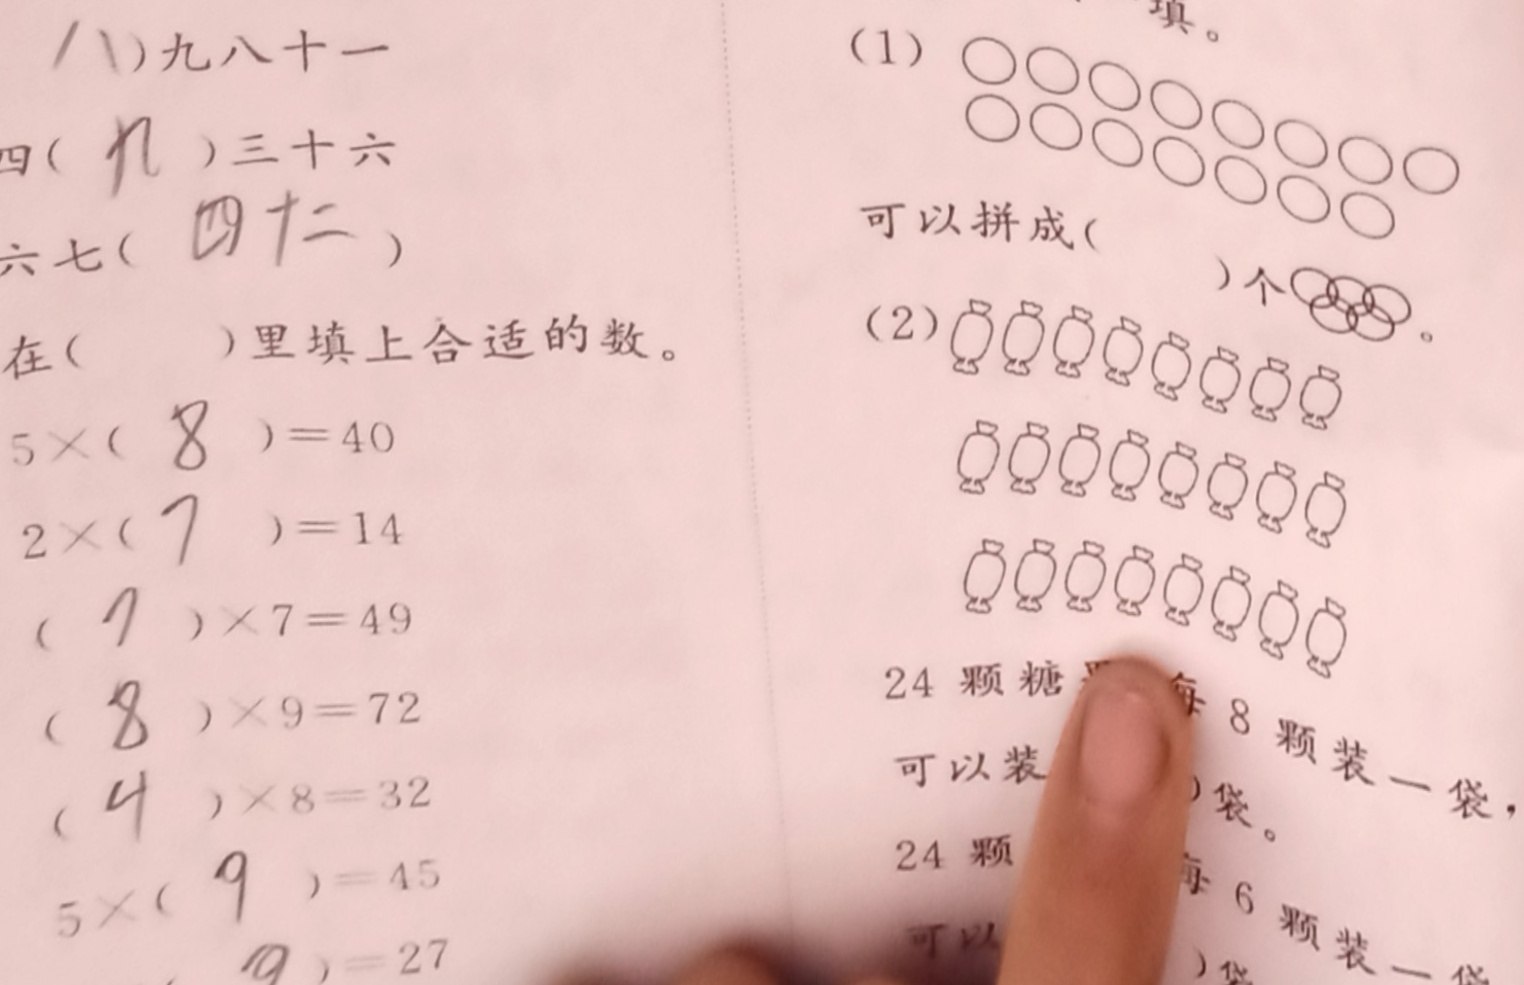 八)九八十一
四(九)三十六
六七(四十二)
在( )里填上合适的数。
5×(8)=40
2×(7)=14
(7)×7=49
(8)×9=72
(4)×8=32
5×(9)=45
(9)=27
填。
(1)
可以拼成( )个 。
(2)
24 颗糖 每 8 颗装一袋,
可以装 )袋。
24 颗 每 6 颗装一袋
可以 )袋